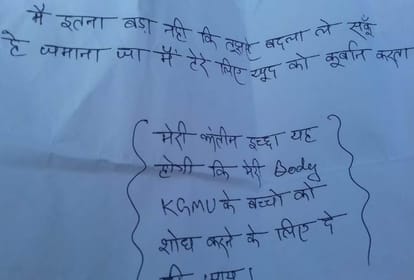 मैं इतना बड़ा नहीं कि तुझसे बदला ले सकूँ
हे जमाना जा मैं तेरे लिए खुद को कुर्बान करता
मेरी अंतीम इच्छा यह
होगी कि मेरी Body
KGMU के बच्चो को
शोध करने के लिए दे